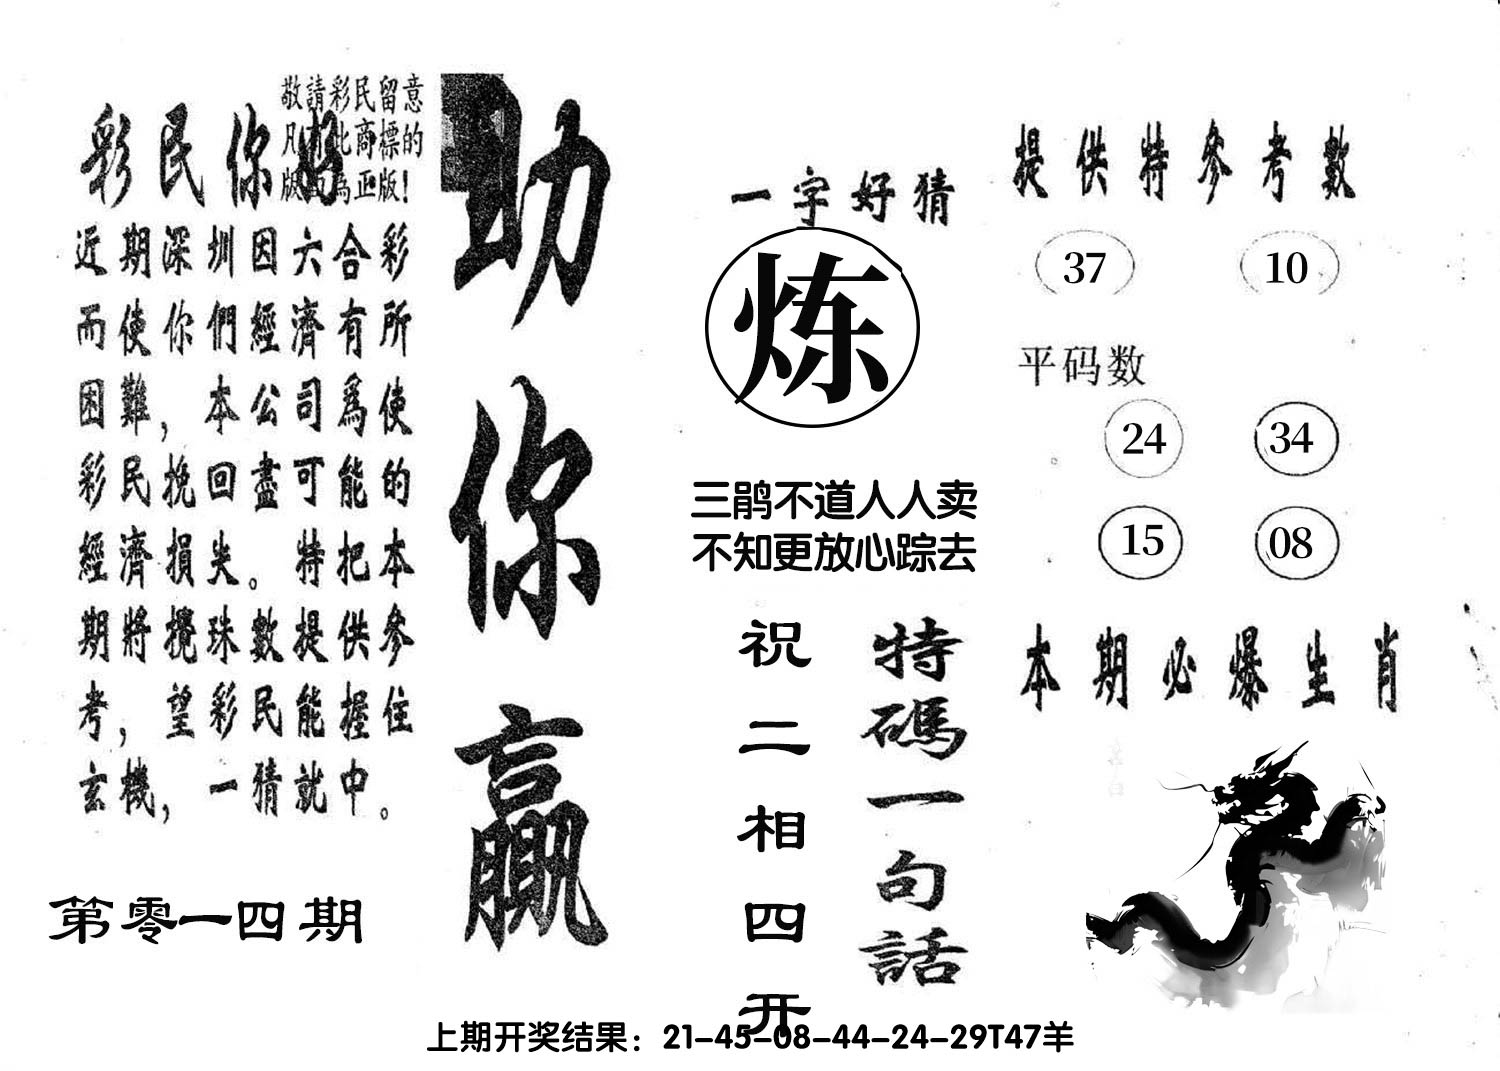 敬請彩民留意
凡有此商標的
版面為正版！
彩民你好
近期深圳因六合彩
而使你們經濟有所
困難，本公司為使
彩民挽回盡可能的
經濟損失。特把本
期將攪珠數提供參
考，望彩民能握住
玄機，一猜就中。
第零一四期
助你贏
一字好猜
炼
三鹃不道人人卖
不知更放心踪去
特碼一句話
祝二相四开
提供特参考數
37 10
平码数
24 34
15 08
本期必爆生肖
上期开奖结果：21-45-08-44-24-29T47羊